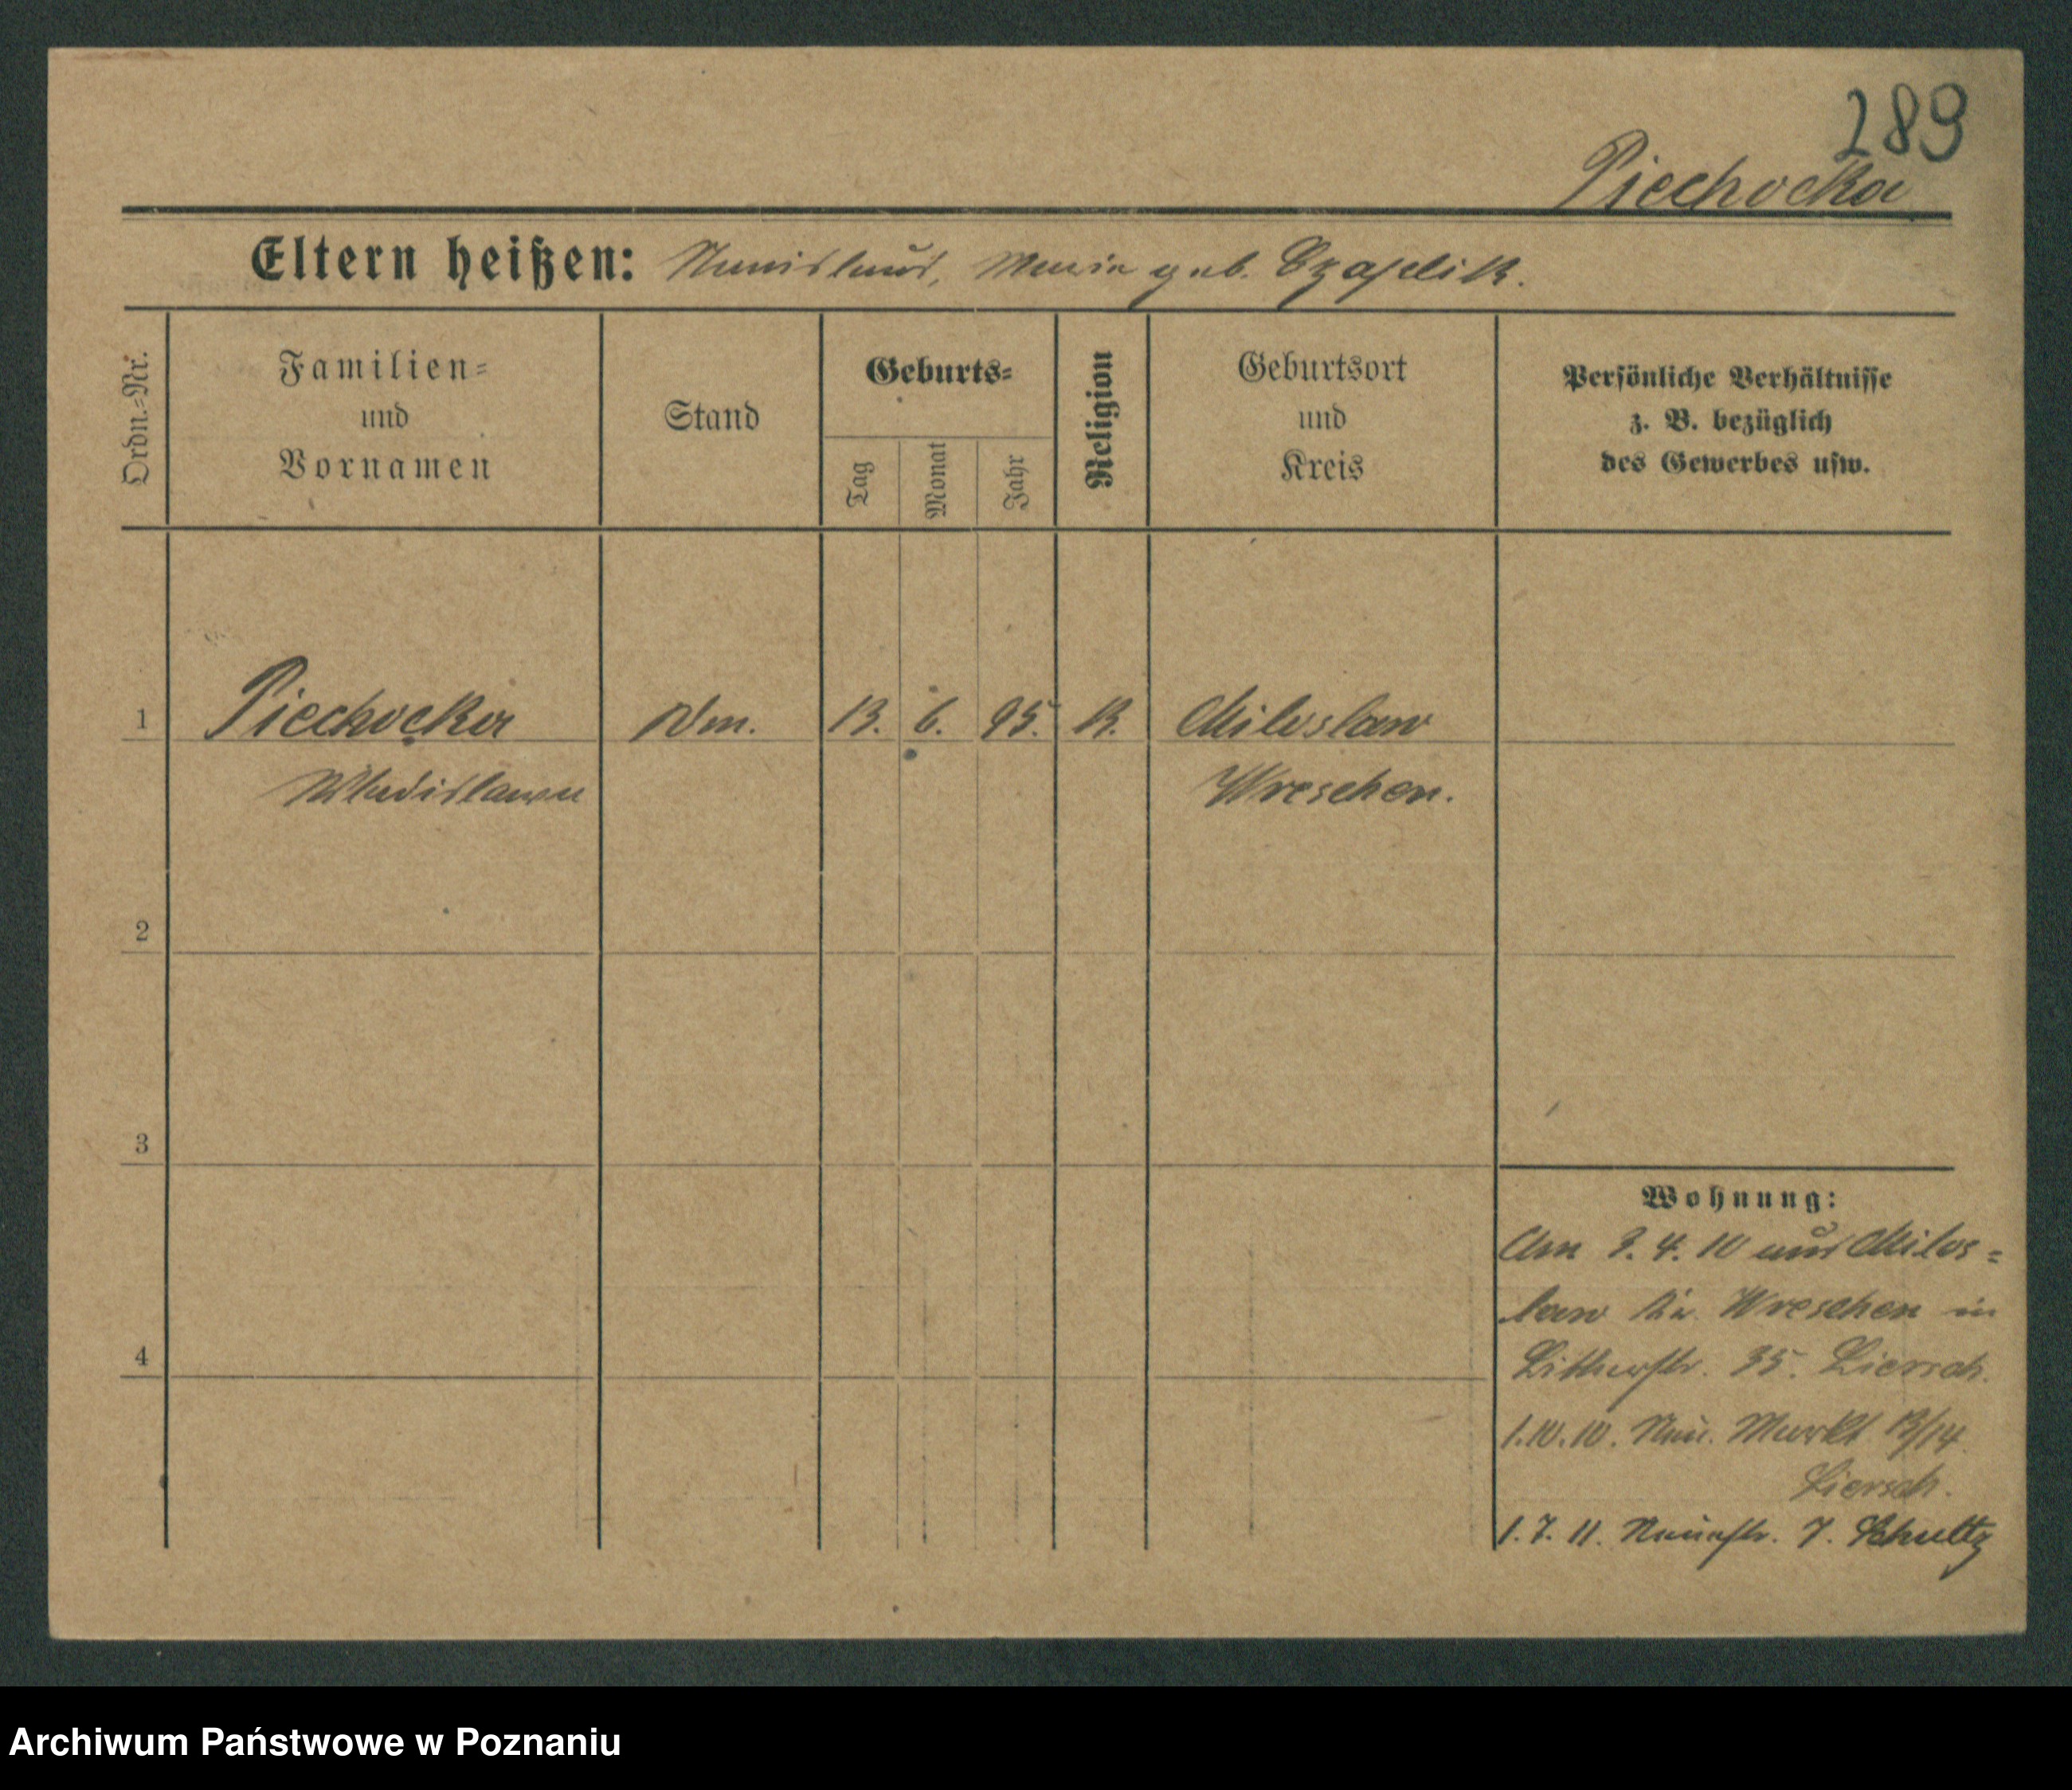 289
Piechocka
Eltern heißen: Stanislaus, Maria geb. Czaplik.
Ordn.=Nr.
Familien=
und
Vornamen
Stand
Geburts=
Tag
Monat
Jahr
Religion
Geburtsort
und
Kreis
Persönliche Verhältnisse
z. B. bezüglich
des Gewerbes usw.
1 Piechocka 13. 6. 95. K. Miloslaw
Wladislawa Wreschen.
2
3
4
Wohnung:
Am 3. 4. 10 aus Milos=
law Kr. Wreschen in
35. Liersch.
1.10.10. Neu. Markt 13/14
Liersch.
1. 7. 11. Neuestr. 7. Schultz
Archiwum Państwowe w Poznaniu